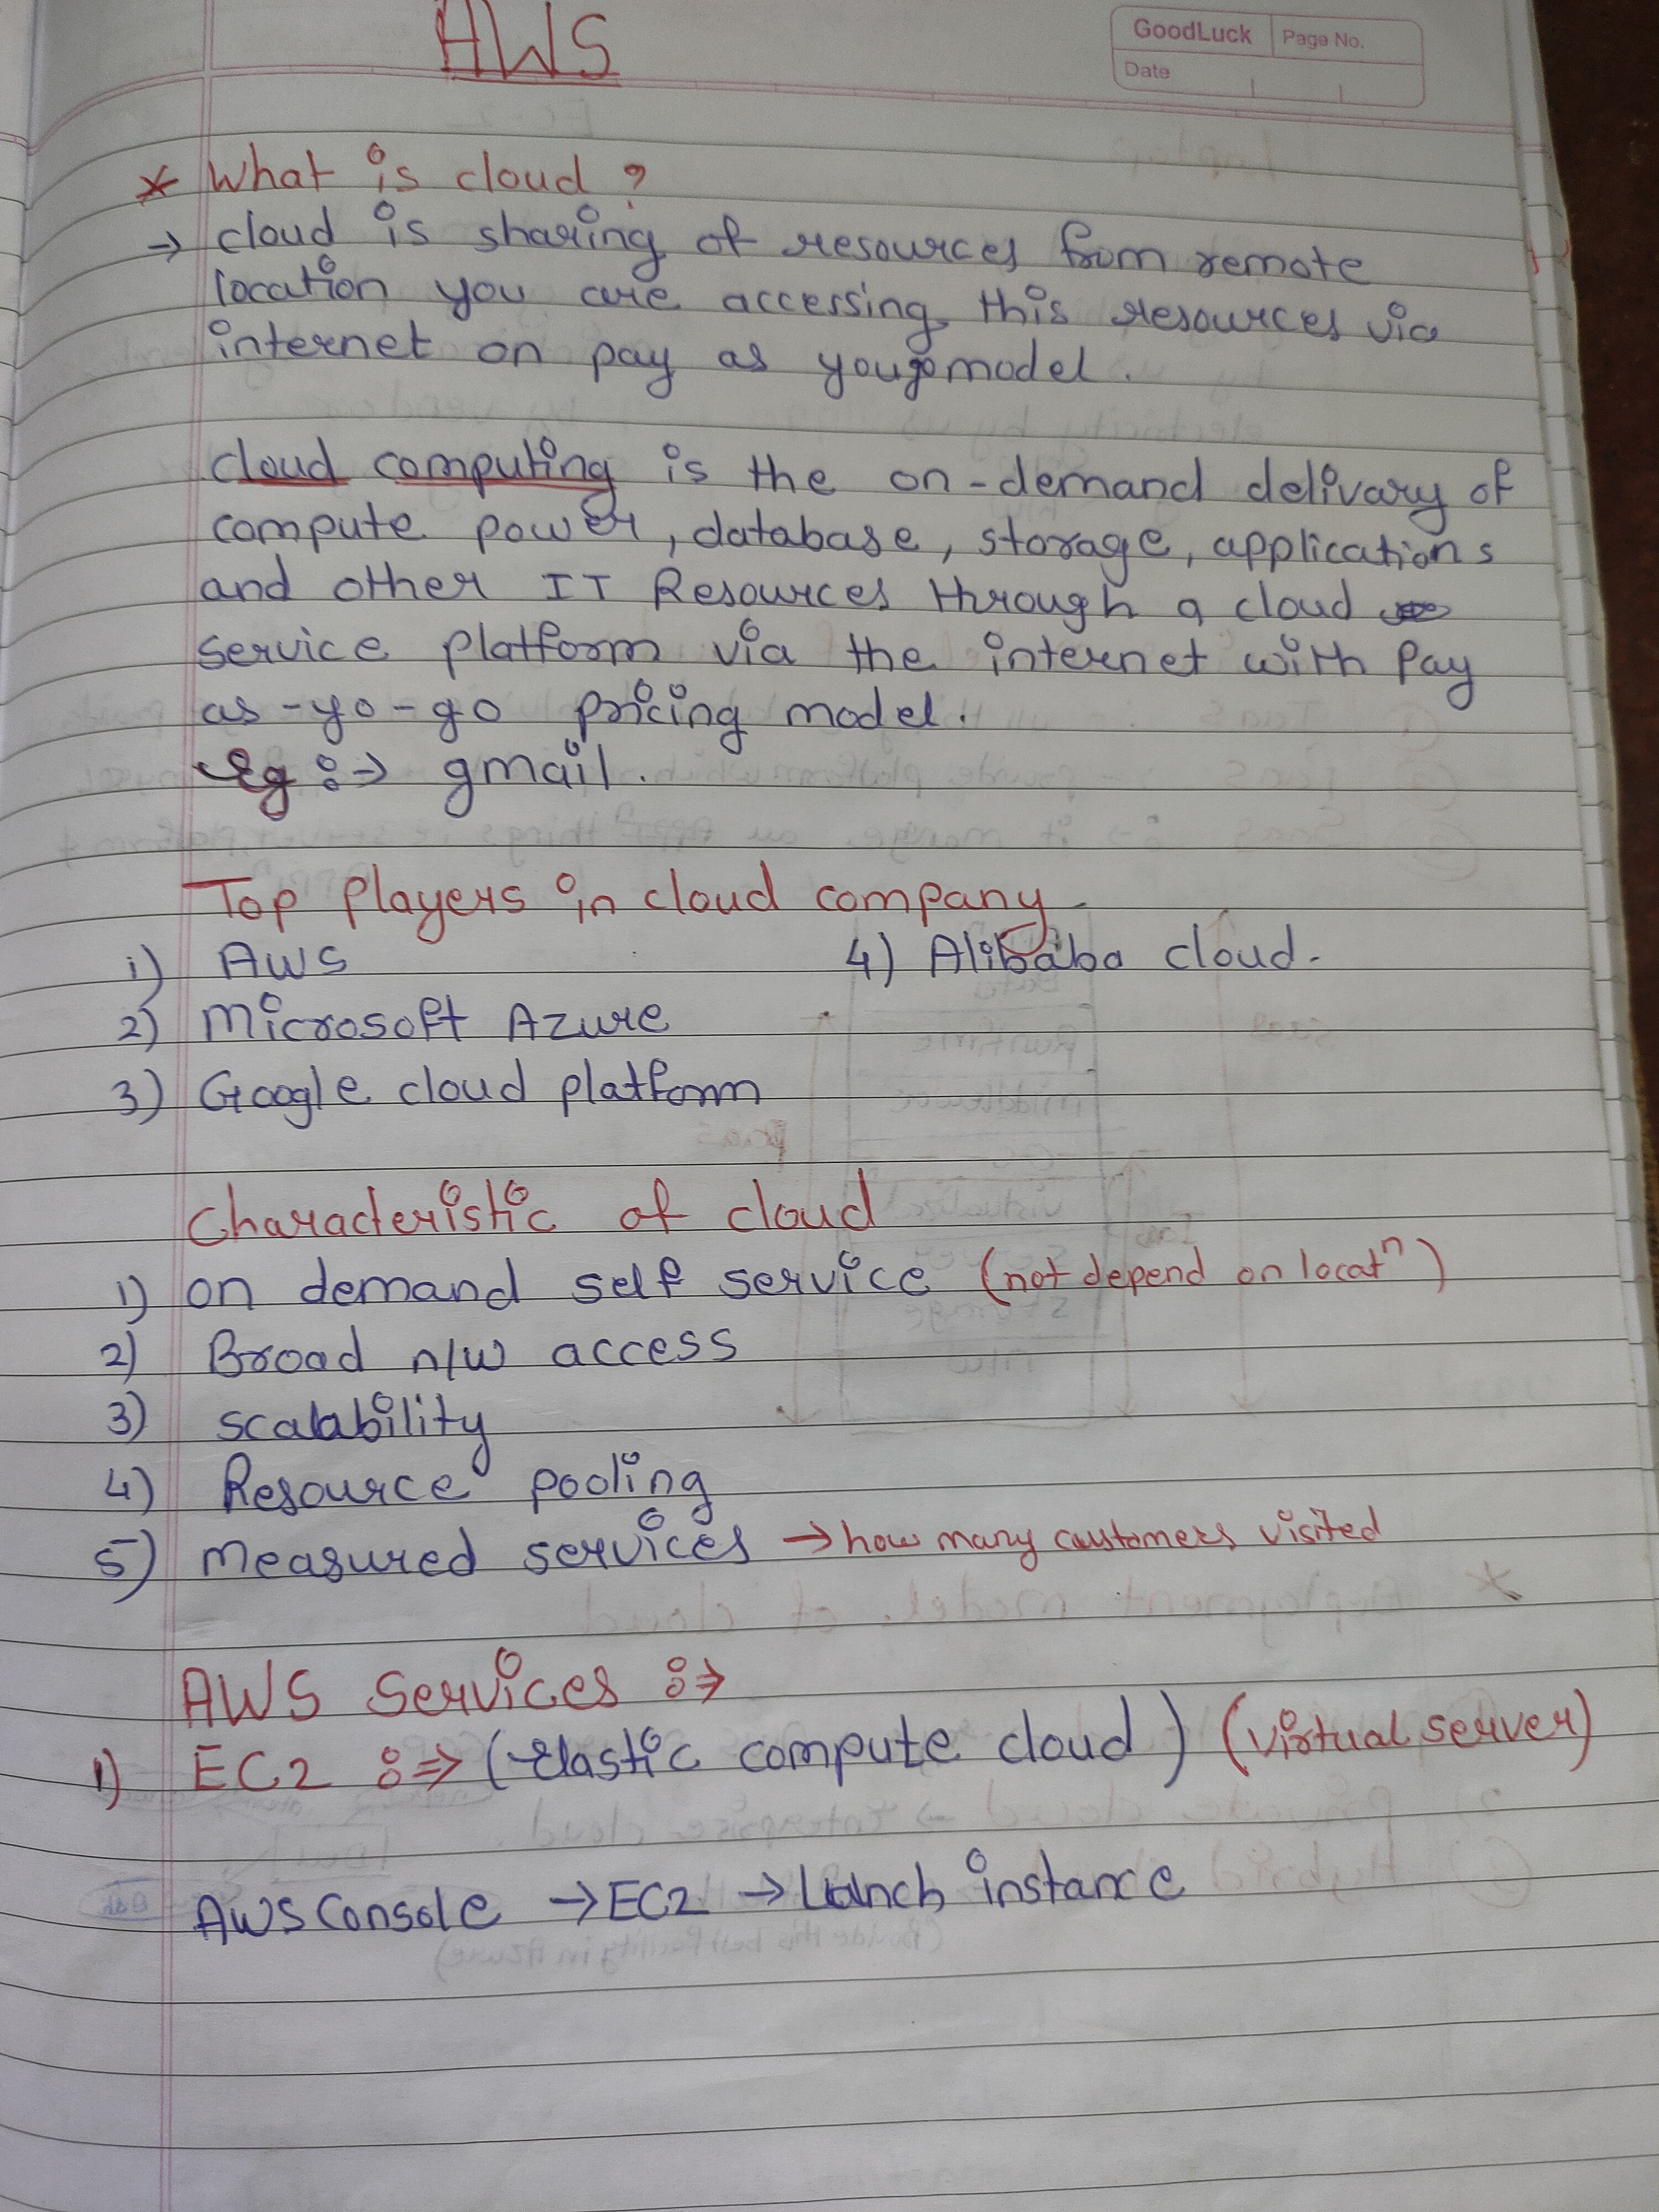 AWS
GoodLuck Page No.
Date
* What is cloud ?
→ cloud is sharing of resources from remote
location you are accessing this resources via
internet on pay as yougo model.
cloud computing is the on-demand delivary of
compute power, database, storage, applications
and other IT Resources through a cloud
service platform via the internet with Pay
as-yo-go pricing model.
Eg :→ gmail.
Top Players in cloud company
1) AWS 4) Alibaba cloud.
2) Microsoft Azure
3) Google cloud platform
Characteristic of cloud
1) on demand self service (not depend on locatⁿ)
2) Broad n/w access
3) scalability
4) Resource pooling
5) Measured services → how many customers visited
AWS Services :⇒
1) EC2 :⇒ (Elastic compute cloud) (virtual server)
AWS Console → EC2 → Launch instance